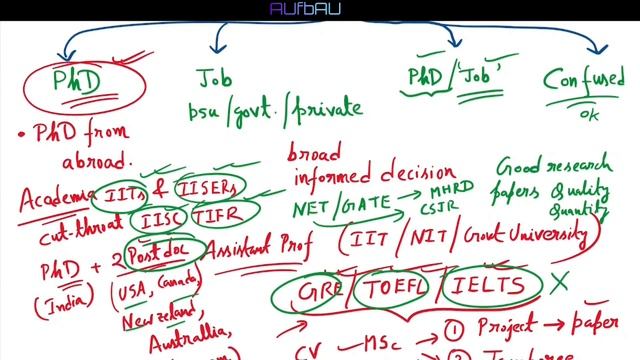 AUFBAU
PhD
Job
PhD / 'Job'
Confused
psu/govt./private
ok
• PhD from
abroad.
broad
informed decision
Good research
papers Quality
Quantity
Academia IITs & IISERs
cut-throat IISC TIFR
NET/GATE → MHRD
CSIR
PhD + 2 Postdoc
(India)
Assistant Prof
(IIT/NIT/Govt University)
(USA, Canada,
New Zeland,
Australlia,
GRE/TOEFL/IELTS X
CV - MSc → ① Project → paper
②